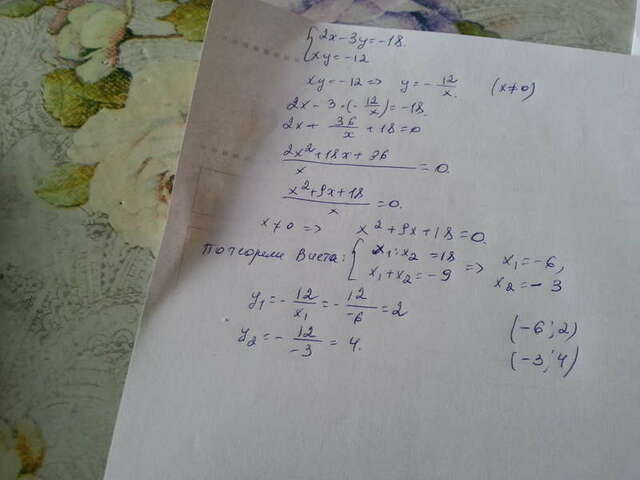 {2x-3y=-18.
{xy=-12
xy=-12 => y=-12/x. (x≠0)
2x-3·(-12/x)=-18.
2x+36/x+18=0
(2x²+18x+36)/x=0.
(x²+9x+18)/x=0.
x≠0 => x²+9x+18=0.
По теореме Виета: {x₁·x₂=18 => x₁=-6,
{x₁+x₂=-9 x₂=-3
y₁=-12/x₁=-12/-6=2 (-6;2)
y₂=-12/-3=4. (-3;4)